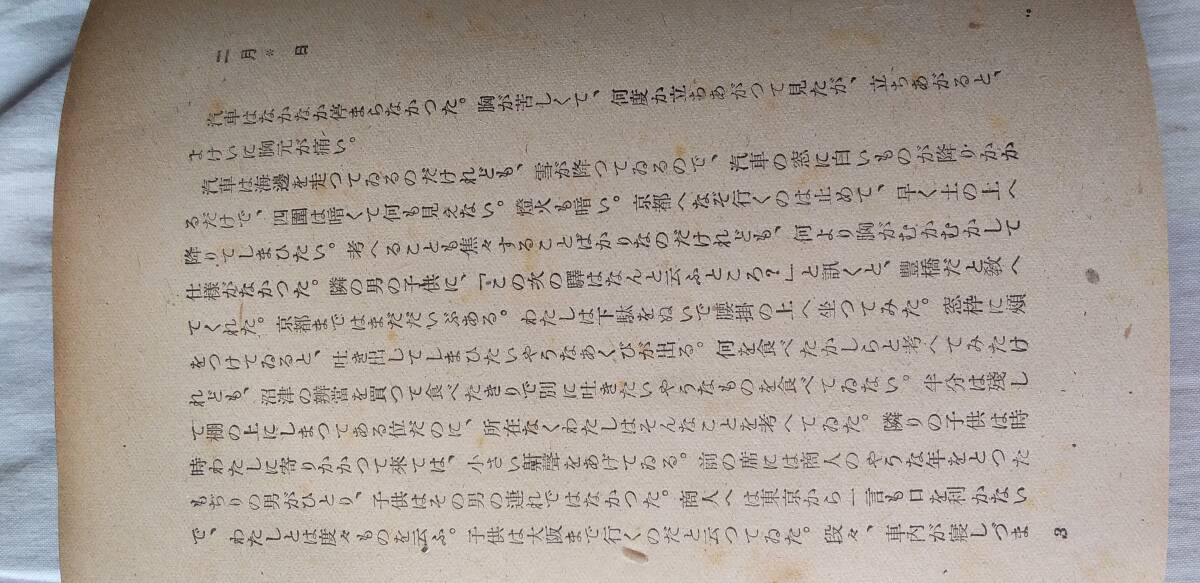 二月*日
汽車はなかなか停まらなかつた。胸が苦しくて、何度か立ちあがつて見たが、立ちあがると、
よけいに胸元が痛い。
汽車は海邊を走つてゐるのだけれども、雪が降つてゐるので、汽車の窓に白いものが降りかか
るだけで、四圍は暗くて何も見えない。燈火も暗い。京都へなぞ行くのは止めて、早く土の上へ
降りてしまひたい。考へることも焦々することばかりなのだけれども、何より胸がむかむかして
仕様がなかつた。隣の男の子供に、「この次の驛はなんと云ふところ?」と訊くと、豊橋だと敎へ
てくれた。京都まではまだだいぶある。わたしは下駄をぬいで腰掛の上へ坐つてみた。窓枠に頰
をつけてゐると、吐き出してしまひたいやうなあくびが出る。何を食べたかしらと考へてみたけ
れども、沼津の辨當を買つて食べたきりで別に吐きたいやうなものを食べてゐない。半分は殘し
て棚の上にしまつてある位だのに、所在なくわたしはそんなことを考へてゐた。隣りの子供は時
時わたしに寄りかかつて來ては、小さい鼾聲をあげてゐる。前の席には商人のやうな年をとつた
もぢりの男がひとり、子供はその男の連れではなかつた。商人へは東京から一言も口を利かない
で、わたしとは度々ものを云ふ。子供は大阪まで行くのだと云つてゐた。段々、車內が寢しづま
3